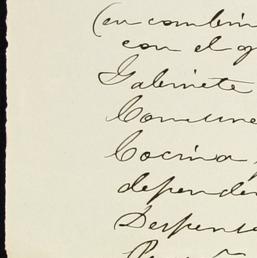 (en combin
con el g
Gabinete
Comune
Cocina,
depende
Despens